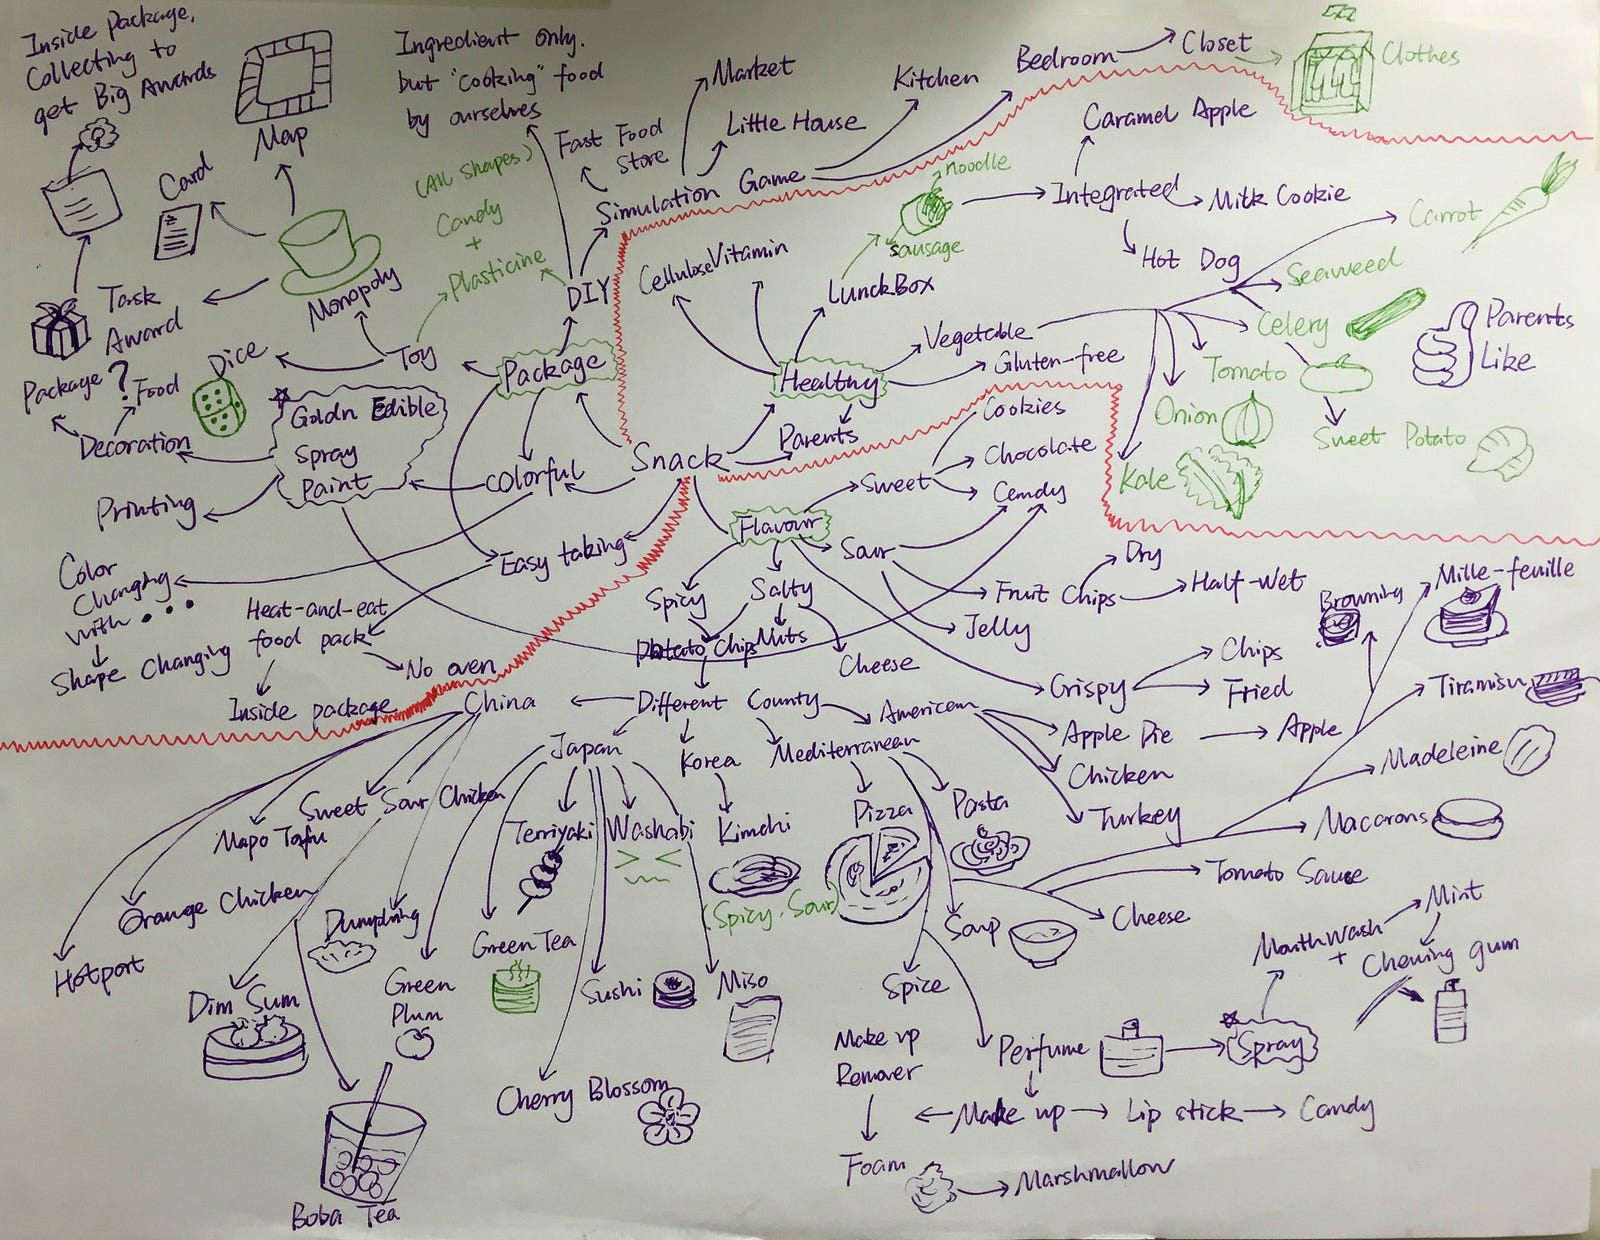 Inside package.
Collecting to
get Big Awards
Map
Card
Task
Award
Monopoly
Ingredient only.
but "cooking" food
by ourselves
(All shapes)
Candy
+
Plasticine
Fast Food
Store
Market
Little House
Kitchen
Bedroom
Closet
Clothes
Simulation Game
DIY
Toy
Dice
Package
Package ? Food
Decoration
Goldn Edible
Spray
Paint
Printing
Colorful
Color
Changing
with...
Shape Changing
Easy taking
Heat-and-eat
food pack
No oven
Inside package
Snack
Healthy
Cellulose
Vitamin
LunckBox
sausage
noodle
Integrated
Caramel Apple
Milk Cookie
Hot Dog
Vegetable
Gluten-free
Parents
Carrot
Seaweed
Celery
Tomato
Onion
Kale
Sweet Potato
Parents
Like
Flavour
Sweet
Cookies
Chocolate
Candy
Sour
Fruit Chips
Dry
Half-Wet
Jelly
Crispy
Chips
Fried
Spicy
Salty
Potato Chips
Nuts
Cheese
Different County
China
Japan
Korea
Mediterranean
American
Apple Pie
Apple
Chicken
Turkey
Browning
Mille-feuille
Tiramisu
Madeleine
Macarons
Tomato Sause
Cheese
Mapo Tofu
Sweet Sour Chicken
Orange Chicken
Hotport
Dumpling
Dim Sum
Boba Tea
Terriyaki
Washabi
Green Tea
Green
Plum
Sushi
Miso
Cherry Blossom
Kimchi
(Spicy, Sour)
Pizza
Pasta
Soup
Spice
Perfume
Spray
MouthWash
+
Mint
Chewing gum
Make up
Lip stick
Candy
Make up
Remover
Foam
Marshmallow